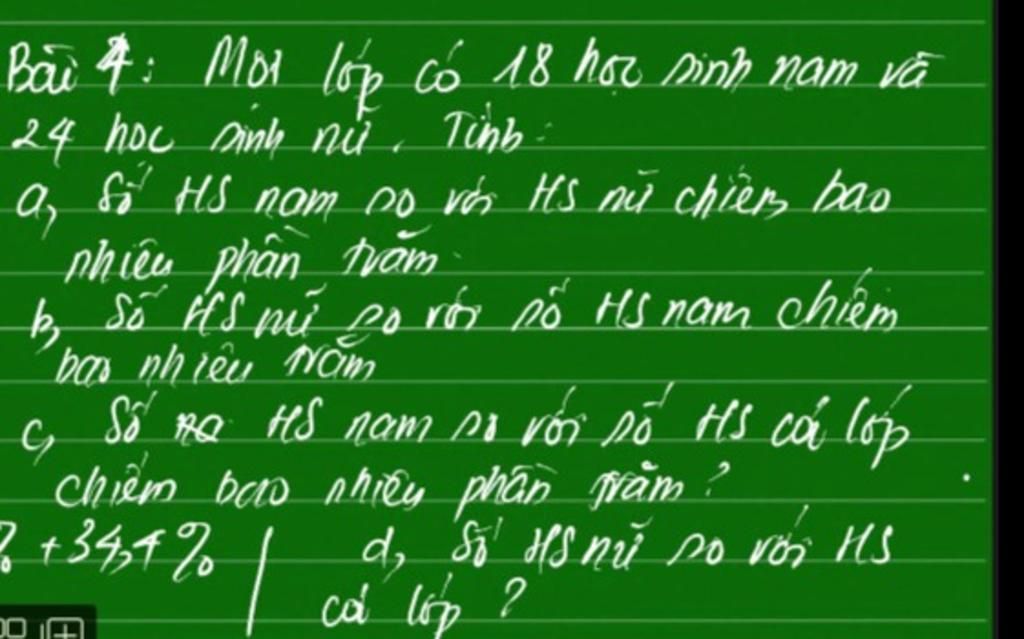 Bài 4: Mọi lớp có 18 học sinh nam và
24 học sinh nữ. Tính:
a, Số HS nam so với HS nữ chiếm bao
nhiêu phần trăm.
b, Số HS nữ so với số HS nam chiếm
bao nhiêu trăm
c, Số HS nam so với số HS cả lớp
chiếm bao nhiêu phần trăm?
% + 34,4% | d, Số HS nữ so với HS
cả lớp?